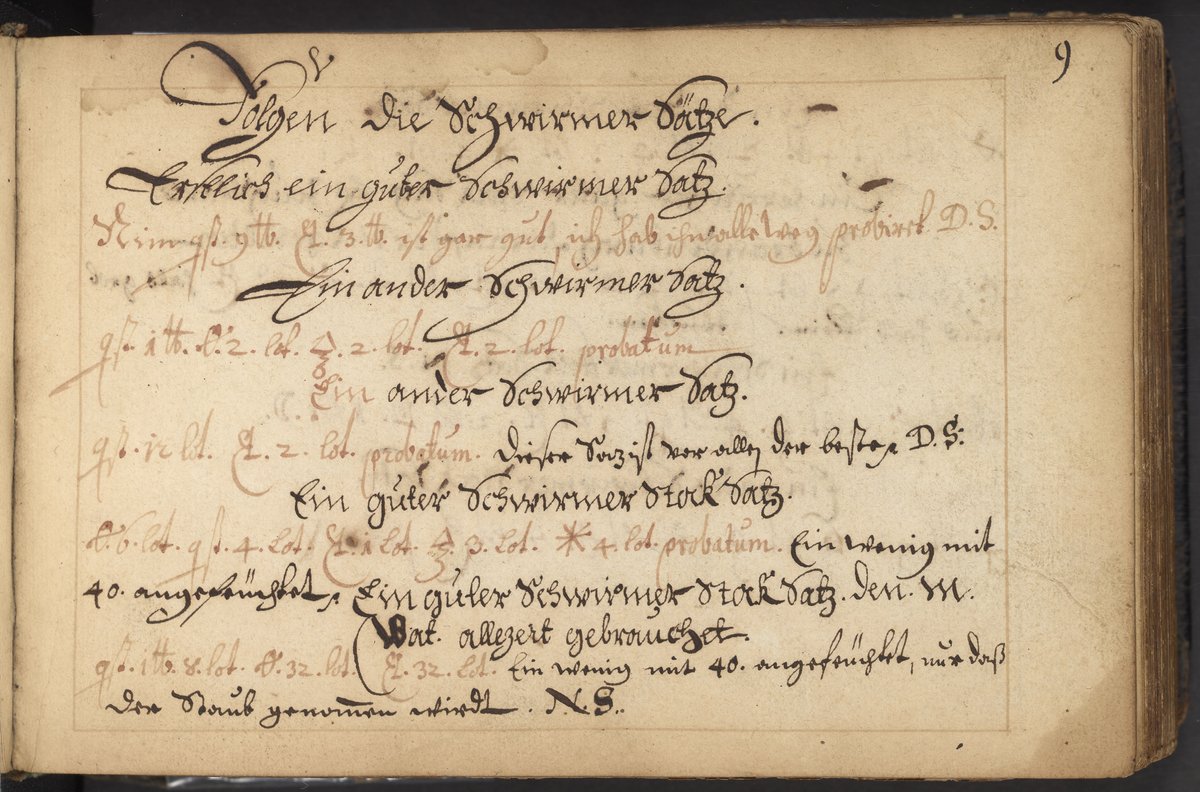 9
Folgen die Schwirmer Sätze.
Erstlich ein guter Schwirmer Satz.
Nim qst. 9 ℔. 3. ℔. ist gar gut, ich hab ihn alle weg probiret D. S.
Ein ander Schwirmer Satz.
qst. 1 ℔. 2. lot. 2. lot. 2. lot. probatum
Ein ander Schwirmer Satz.
qst. 12 lot. 2. lot. probatum. dieser Saz ist vor allen der beste D. S:
Ein guter Schwirmer Stok Satz.
6. lot. qst. 4. lot. 1 lot. 3. lot. 4. lot. probatum. Ein wenig mit
40. angefeüchtet, Ein guter Schwirmer Stok Satz. den. M.
Wat. allezeit gebrauchet.
qst. 1 ℔. 8. lot. 32. lot. 32. lot. Ein wenig mit 40. angefeüchtet, nur daß
der Staub genom̃en wirdt. N. S.